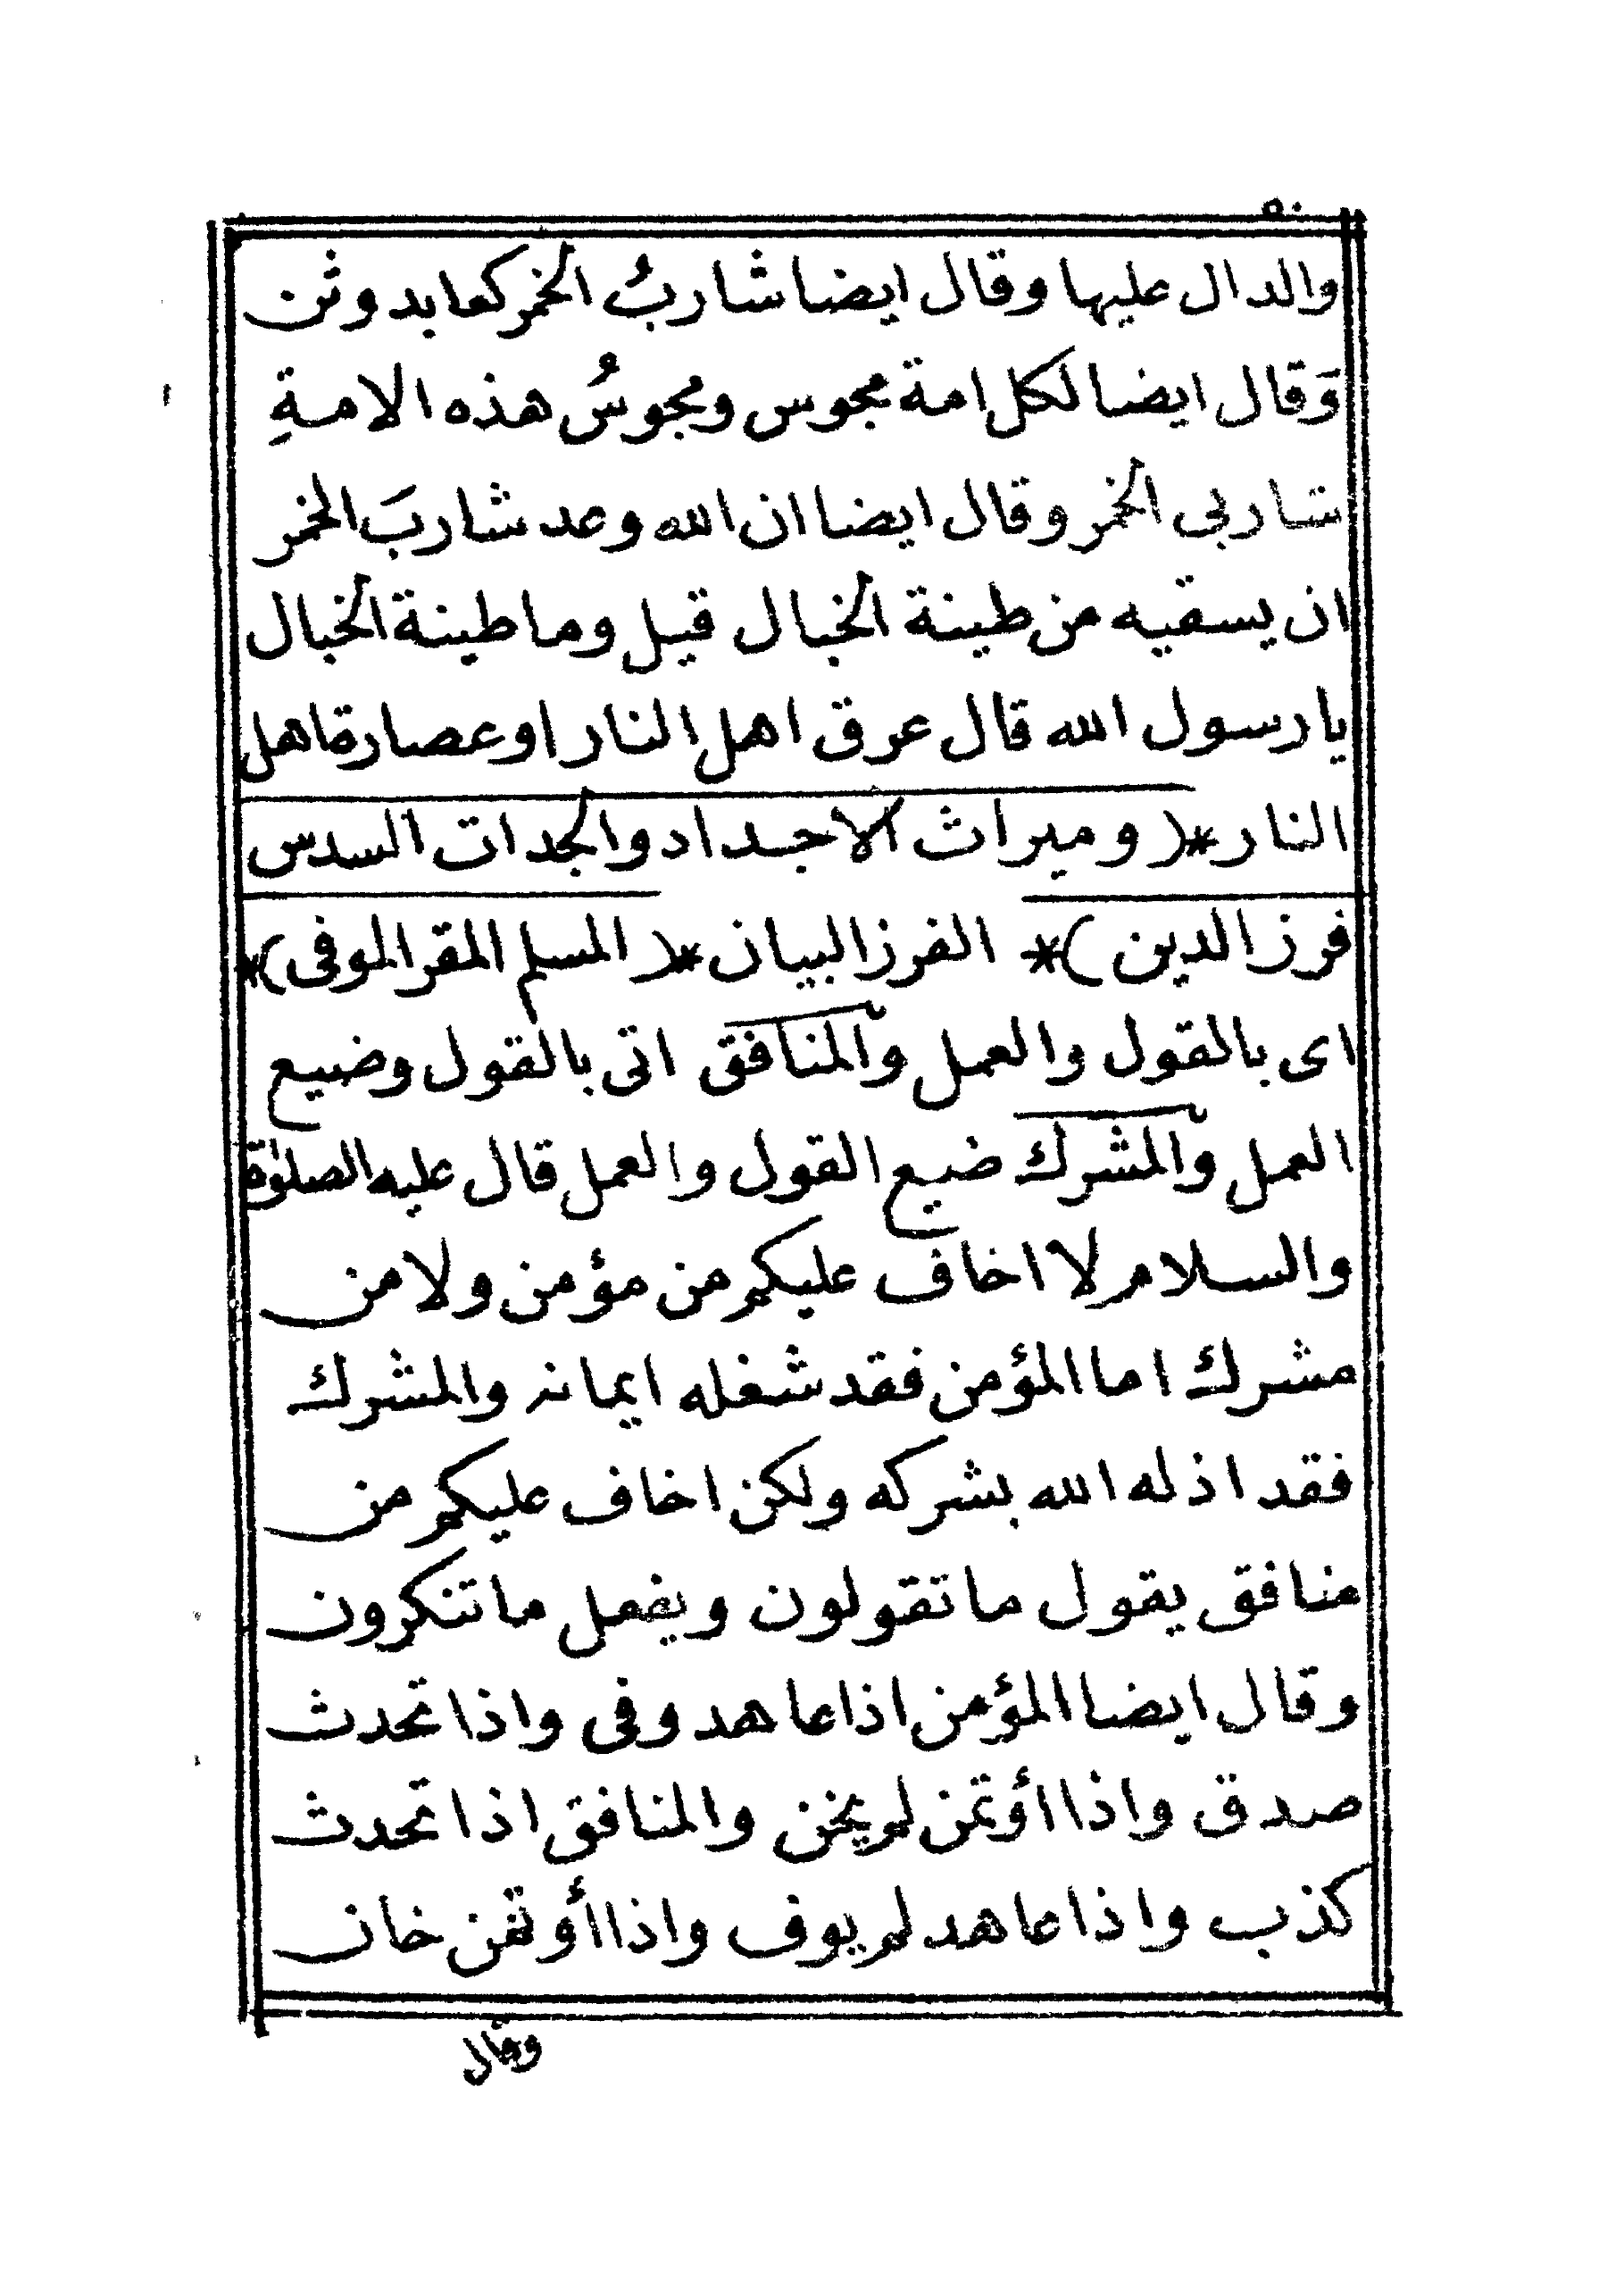 ٥٠
والدال عليها وقال ايضا شاربُ الخمر كعابد وثن
وَقال ايضا لكل امة مجوس ومجوسُ هذه الامةِ
شاربى الخمر وقال ايضا ان الله وعد شاربَ الخمر
ان يسقيه من طينة الخبال قيل وما طينة الخبال
يا رسول الله قال عرق اهل النار او عصارة اهل
النار *( وميراث الاجداد والجدات السدس
فرز الدين )* الفرز البيان *( المسلم المقر الموفى )*
اى بالقول والعمل والمنافق اتى بالقول وضيع
العمل والمشرك ضيع القول والعمل قال عليه الصلوة
والسلام لا اخاف عليكم من مؤمن ولا من
مشرك اما المؤمن فقد شغله ايمانه والمشرك
فقد اذله الله بشركه ولكن اخاف عليكم من
منافق يقول ما تقولون ويفعل ما تنكرون
وقال ايضا المؤمن اذا عاهد وفى واذا تحدث
صدق واذا أؤتمن لم يخن والمنافق اذا تحدث
كذب واذا عاهد لم يوف واذا أوتمن خان
وقال